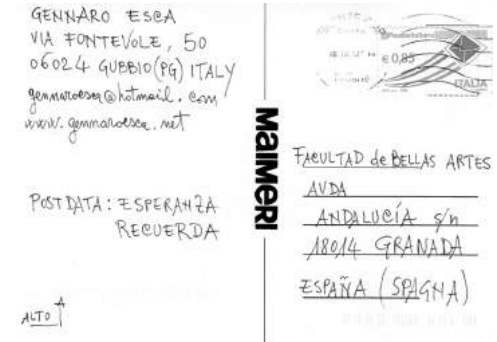 GENNARO ESCA
VIA FONTEVOLE, 50
06024 GUBBIO (PG) ITALY
gennaroesca@hotmail.com
www.gennaroesca.net
POSTDATA: ESPERANZA
RECUERDA
ALTO
MAIMERI
€0,85
ITALIA
FACULTAD de BELLAS ARTES
AVDA
ANDALUCÍA s/n
18014 GRANADA
ESPAÑA (SPAGNA)